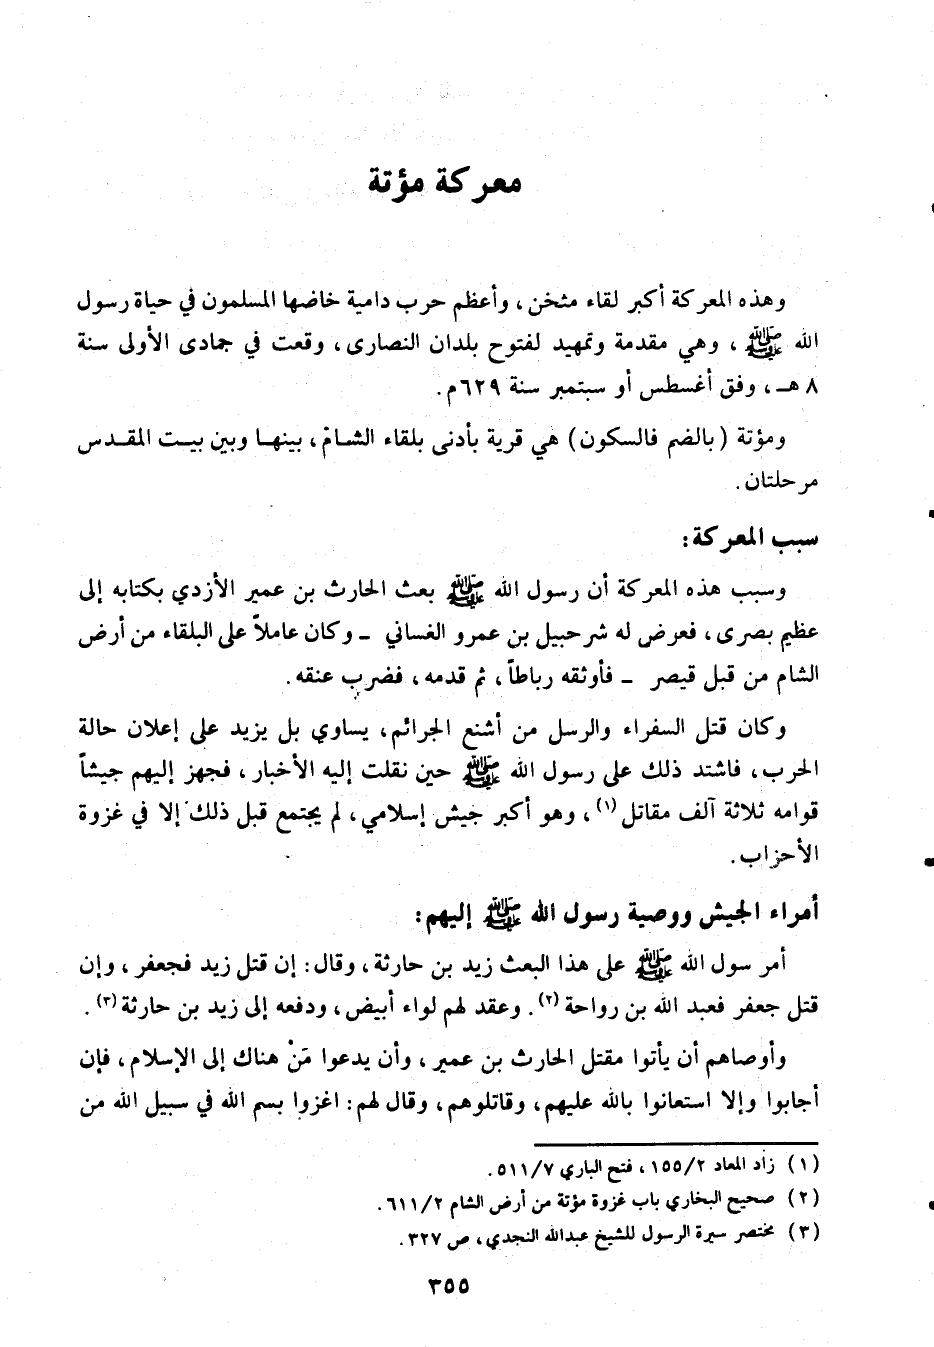 معركة مؤتة
وهذه المعركة أكبر لقاء مثخن، وأعظم حرب دامية خاضها المسلمون في حياة رسول
الله ﷺ، وهي مقدمة وتمهيد لفتوح بلدان النصارى، وقعت في جمادى الأولى سنة
٨ هـ، وفق أغسطس أو سبتمبر سنة ٦٢٩م.
ومؤتة (بالضم فالسكون) هي قرية بأدنى بلقاء الشام، بينها وبين بيت المقدس
مرحلتان.
سبب المعركة:
وسبب هذه المعركة أن رسول الله ﷺ بعث الحارث بن عمير الأزدي بكتابه إلى
عظيم بصرى، فعرض له شرحبيل بن عمرو الغساني - وكان عاملاً على البلقاء من أرض
الشام من قبل قيصر - فأوثقه رباطاً، ثم قدمه، فضرب عنقه.
وكان قتل السفراء والرسل من أشنع الجرائم، يساوي بل يزيد على إعلان حالة
الحرب، فاشتد ذلك على رسول الله ﷺ حين نقلت إليه الأخبار، فجهز إليهم جيشاً
قوامه ثلاثة آلف مقاتل(١)، وهو أكبر جيش إسلامي، لم يجتمع قبل ذلك إلا في غزوة
الأحزاب.
أمراء الجيش ووصية رسول الله ﷺ إليهم:
أمر سول الله ﷺ على هذا البعث زيد بن حارثة، وقال: إن قتل زيد فجعفر، وإن
قتل جعفر فعبد الله بن رواحة(٢). وعقد لهم لواء أبيض، ودفعه إلى زيد بن حارثة(٣).
وأوصاهم أن يأتوا مقتل الحارث بن عمير، وأن يدعوا مَنْ هناك إلى الإسلام، فإن
أجابوا وإلا استعانوا بالله عليهم، وقاتلوهم، وقال لهم: اغزوا بسم الله في سبيل الله من
(١) زاد المعاد ١٥٥/٢، فتح الباري ٥١١/٧.
(٢) صحيح البخاري باب غزوة مؤتة من أرض الشام ٦١١/٢.
(٣) مختصر سيرة الرسول للشيخ عبدالله النجدي، ص ٣٢٧.
٣٥٥